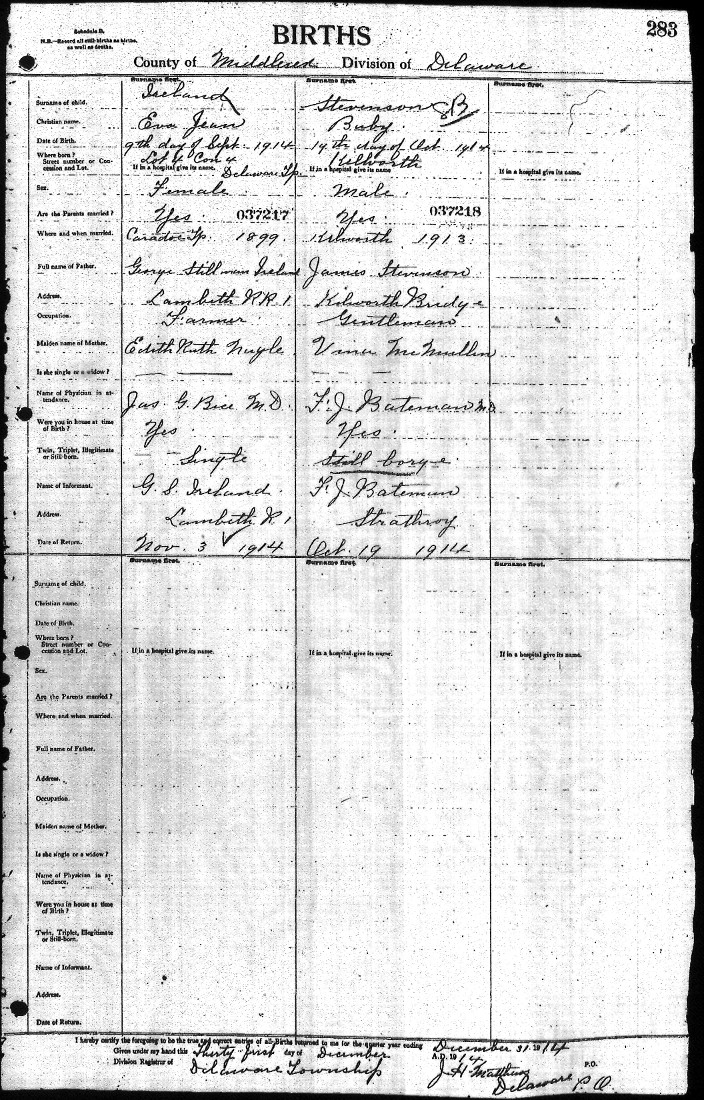 Schedule B.
N.B.—Record all still-births as births,
as well as deaths.
BIRTHS
283
County of Middlesex Division of Delaware
Surname first. Surname first. Surname first.
Surname of child. Ireland Stevenson SB
Christian name. Eva Jean Baby
Date of Birth. 9th day of Sept. 1914 14th day of Oct. 1914
Where born?
Street number or Con-
cession and Lot.
Lot 4 Con 4 Delaware Tp. Kilworth
If in a hospital give its name. If in a hospital give its name If in a hospital give its name
Sex. Female Male
Are the Parents married? Yes 037217 Yes 037218
Where and when married. Caradoc Tp. 1899. Kilworth 1913.
Full name of Father. George Ireland James Stevenson
Address. Lambeth RR 1 Kilworth Bridge
Occupation. Farmer Gentleman
Maiden name of Mother. Edith Ruth Nagle McMullen
Is she single or a widow?
Name of Physician in at-
tendance. Jas. G. Bice M.D. F. J. Bateman M.D.
Were you in house at time
of Birth? Yes. Yes.
Twin, Triplet, Illegitimate
or Still-born. Single Still borne
Name of Informant. G. S. Ireland F. J. Bateman
Address. Lambeth R 1 Strathroy
Date of Return. Nov. 3 1914 Oct. 19 1914
Surname first. Surname first. Surname first.
Surname of child.
Christian name.
Date of Birth.
Where born?
Street number or Con-
cession and Lot.
If in a hospital give its name. If in a hospital give its name. If in a hospital give its name.
Sex.
Are the Parents married?
Where and when married.
Full name of Father.
Address.
Occupation.
Maiden name of Mother.
Is she single or a widow?
Name of Physician in at-
tendance.
Were you in house at time
of Birth?
Twin, Triplet, Illegitimate
or Still-born.
Name of Informant.
Address.
Date of Return.
I hereby certify the foregoing to be the true and correct entries of all Births returned to me for the quarter year ending December 31 1914
Given under my hand this Thirty first day of December A.D. 1914
Division Registrar of Delaware Township J H Matthews
Delaware P.O. P.O.